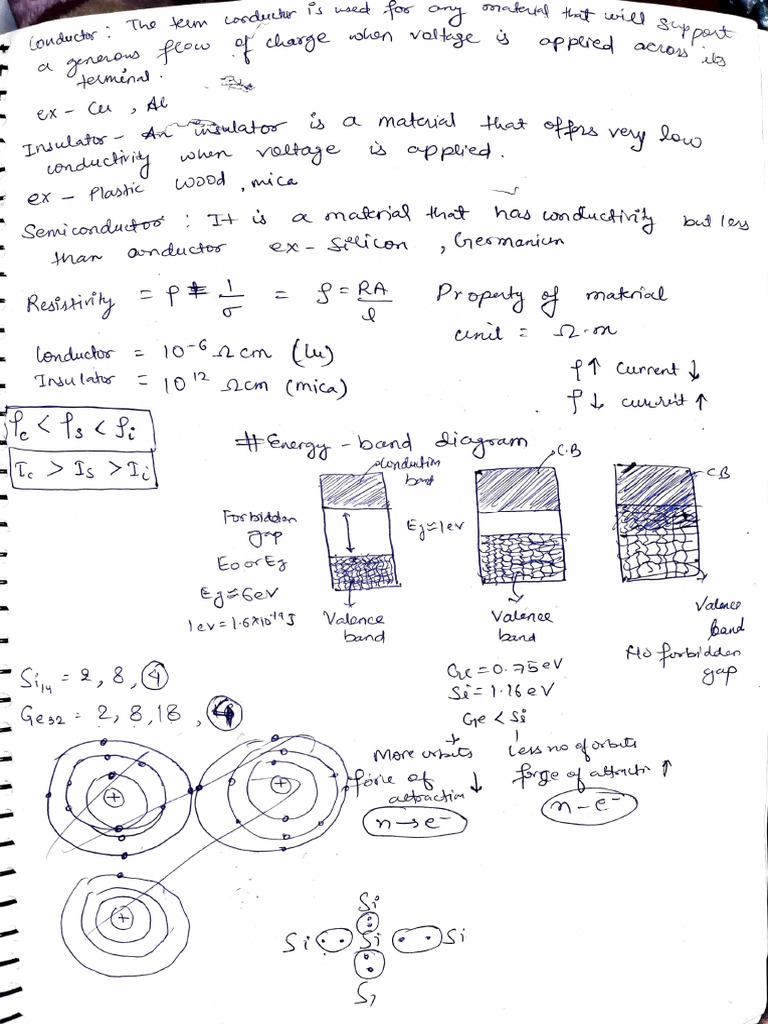 Conductor : The term conductor is used for any material that will support
a generous flow of charge when voltage is applied across its
terminal.
ex - Cu , Al
Insulator - An insulator is a material that offers very low
conductivity when voltage is applied.
ex - Plastic wood , mica
Semiconductor : It is a material that has conductivity but less
than conductor ex - Silicon , Germanium
Resistivity = ρ = 1/σ = ρ = RA/l Property of material
unit = Ω-m
Conductor = 10⁻⁶ Ωcm (Cu)
Insulator = 10¹² Ωcm (mica)
ρ↑ current ↓
ρ↓ current ↑
ρc < ρs < ρi
Ic > Is > Ii
# Energy - band diagram
Conduction band
C.B
CB
Forbidden gap
E0 or Eg
Eg ≈ 6ev
1ev = 1.6×10⁻¹⁹J
Eg ≈ 1ev
Valence band
Valence band
Valence band
No forbidden gap
Ge = 0.75eV
Si = 1.16 eV
Ge < Si
Si14 = 2, 8, 4
Ge32 = 2, 8, 18, 4
More orbits
force of attraction ↓
n → e⁻
Less no of orbits
force of attraction ↑
n - e⁻
+
+
+
Si
Si Si Si
Si